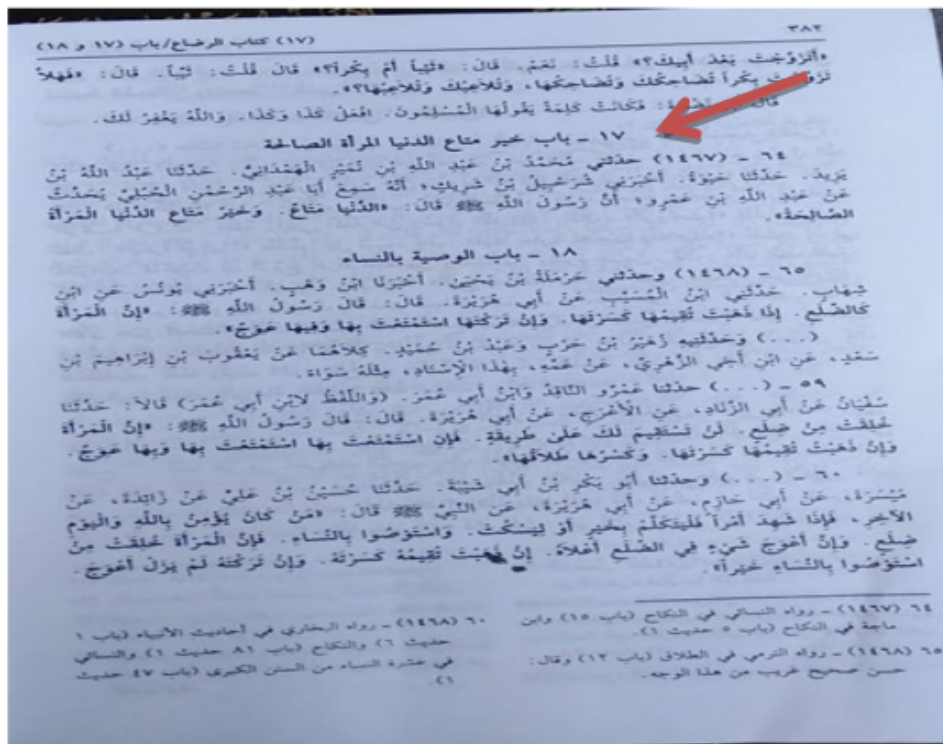 ٣٨٢
(١٧) كتاب الرضاع/باب (١٧ و ١٨)
«أَتَزَوَّجْتَ بَعْدَ أَبِيكَ؟» قُلْتُ: نَعَمْ. قَالَ: «ثَيِّباً أَمْ بِكْراً؟» قَالَ قُلْتُ: ثَيِّباً. قَالَ: «فَهَلاَّ
تَزَوَّجْتَ بِكْراً تُضَاحِكُكَ وَتُضَاحِكُهَا، وَتُلاَعِبُكَ وَتُلاَعِبُهَا؟».
قَالَ: فَكَانَتْ كَلِمَةً يَقُولُهَا الْمُسْلِمُونَ. افْعَلْ كَذَا وَكَذَا. وَاللَّهُ يَغْفِرُ لَكَ.
١٧ ـ باب خير متاع الدنيا المرأة الصالحة
٦٤ ـ (١٤٦٧) حدثني مُحَمَّدُ بْنُ عَبْدِ اللَّهِ بْنِ نُمَيْرٍ الْهَمْدَانِيُّ. حَدَّثَنَا عَبْدُ اللَّهِ بْنُ
يَزِيدَ. حَدَّثَنَا حَيْوَةُ. أَخْبَرَنِي شُرَحْبِيلُ بْنُ شَرِيكٍ؛ أَنَّهُ سَمِعَ أَبَا عَبْدِ الرَّحْمٰنِ الْحُبُلِيَّ يُحَدِّثُ
عَنْ عَبْدِ اللَّهِ بْنِ عَمْرٍو؛ أَنَّ رَسُولَ اللَّهِ ﷺ قَالَ: «الدُّنْيَا مَتَاعٌ. وَخَيْرُ مَتَاعِ الدُّنْيَا الْمَرْأَةُ
الصَّالِحَةُ».
١٨ ـ باب الوصية بالنساء
٦٥ ـ (١٤٦٨) وحدثني حَرْمَلَةُ بْنُ يَحْيَىٰ. أَخْبَرَنَا ابْنُ وَهْبٍ. أَخْبَرَنِي يُونُسُ عَنِ ابْنِ
شِهَابٍ. حَدَّثَنِي ابْنُ الْمُسَيَّبِ عَنْ أَبِي هُرَيْرَةَ. قَالَ: قَالَ رَسُولُ اللَّهِ ﷺ: «إِنَّ الْمَرْأَةَ
كَالضِّلَعِ. إِذَا ذَهَبْتَ تُقِيمُهَا كَسَرْتَهَا. وَإِنْ تَرَكْتَهَا اسْتَمْتَعْتَ بِهَا وَفِيهَا عِوَجٌ».
(...) وَحَدَّثَنِيهِ زُهَيْرُ بْنُ حَرْبٍ وَعَبْدُ بْنُ حُمَيْدٍ. كِلاَهُمَا عَنْ يَعْقُوبَ بْنِ إِبْرَاهِيمَ بْنِ
سَعْدٍ، عَنِ ابْنِ أَخِي الزُّهْرِيِّ، عَنْ عَمِّهِ، بِهَذَا الإِسْنَادِ، مِثْلَهُ سَوَاءً.
٥٩ ـ (...) حدثنا عَمْرٌو النَّاقِدُ وَابْنُ أَبِي عُمَرَ. (وَاللَّفْظُ لاِبْنِ أَبِي عُمَرَ) قَالاَ: حَدَّثَنَا
سُفْيَانُ عَنْ أَبِي الزِّنَادِ، عَنِ الأَعْرَجِ، عَنْ أَبِي هُرَيْرَةَ. قَالَ: قَالَ رَسُولُ اللَّهِ ﷺ: «إِنَّ الْمَرْأَةَ
خُلِقَتْ مِنْ ضِلَعٍ. لَنْ تَسْتَقِيمَ لَكَ عَلَىٰ طَرِيقَةٍ. فَإِنِ اسْتَمْتَعْتَ بِهَا اسْتَمْتَعْتَ بِهَا وَبِهَا عِوَجٌ.
وَإِنْ ذَهَبْتَ تُقِيمُهَا كَسَرْتَهَا. وَكَسْرُهَا طَلاَقُهَا».
٦٠ ـ (...) وحدثنا أَبُو بَكْرِ بْنُ أَبِي شَيْبَةَ. حَدَّثَنَا حُسَيْنُ بْنُ عَلِيٍّ عَنْ زَائِدَةَ، عَنْ
مَيْسَرَةَ، عَنْ أَبِي حَازِمٍ، عَنْ أَبِي هُرَيْرَةَ، عَنِ النَّبِيِّ ﷺ قَالَ: «مَنْ كَانَ يُؤْمِنُ بِاللَّهِ وَالْيَوْمِ
الآخِرِ، فَإِذَا شَهِدَ أَمْراً فَلْيَتَكَلَّمْ بِخَيْرٍ أَوْ لِيَسْكُتْ. وَاسْتَوْصُوا بِالنِّسَاءِ. فَإِنَّ الْمَرْأَةَ خُلِقَتْ مِنْ
ضِلَعٍ. وَإِنَّ أَعْوَجَ شَيْءٍ فِي الضِّلَعِ أَعْلاَهُ. إِنْ ذَهَبْتَ تُقِيمُهُ كَسَرْتَهُ. وَإِنْ تَرَكْتَهُ لَمْ يَزَلْ أَعْوَجَ.
اسْتَوْصُوا بِالنِّسَاءِ خَيْراً».
٦٤ (١٤٦٧) ـ رواه النسائي في النكاح (باب ١٥) وابن
ماجة في النكاح (باب ٥ حديث ١).
٦٥ (١٤٦٨) ـ رواه الترمي في الطلاق (باب ١٢) وقال:
حسن صحيح غريب من هذا الوجه.
٦٠ (١٤٦٨) ـ رواه البخاري في أحاديث الأنبياء (باب ١
حديث ٦) والنكاح (باب ٨١ حديث ١) والنسائي
في عشرة النساء من السنن الكبرى (باب ٤٧ حديث
١).